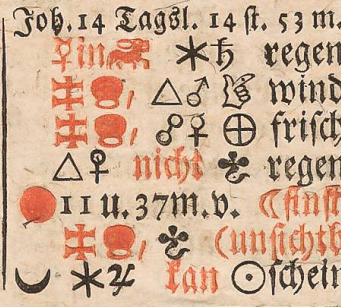 Joh. 14 Tagsl. 14 st. 53 m.
♀ in ⚹ ♄ regen
△ ♂ wind
☍ ♀ ⊕ frisch
△ ♀ nicht regen
11 u. 37 m. v. (finst
(unsichtb
☾ ⚹ ♃ kan ☉schein